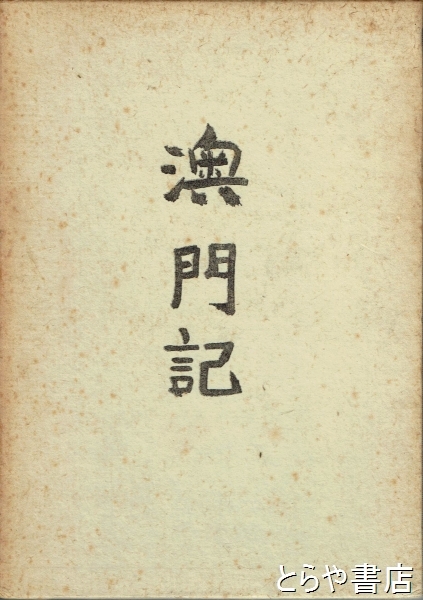 澳門記
とらや書店